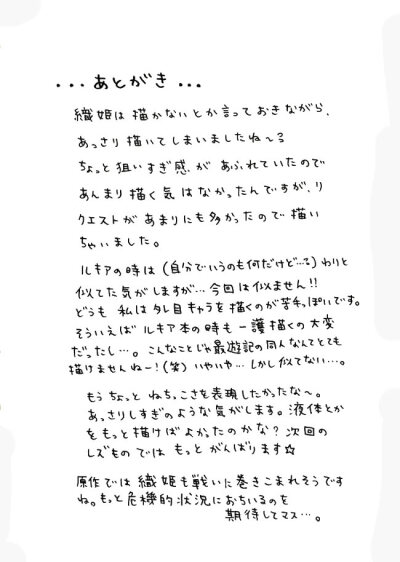 ・・・あとがき・・・
織姫は描かないとか言っておきながら、
あっさり描いてしまいましたね〜る
ちょっと狙いすぎ感、があふれていたので
あんまり描く気はなかったんですが、リ
クエストがあまりにも多かったので描い
ちゃいました。
ルキアの時は（自分でいうのも何だけど…る）わりと
似てた気がしますが…今回は似ません!!
どうも 私はタレ目キャラを描くのが苦手っぽいです。
そういえば ルキア本の時も一護描くの大変
だったし…。こんなことじゃ最遊記の同人なんてとても
描けませんねー!（笑）いやいや…しかし似てない…。
もう ちょっと ねちっこさを表現したかったな〜。
あっさりしすぎのような気がします。液体とか
をもっと描けばよかったのかな？次回の
レズものでは もっと がんばります☆
原作では 織姫も戦いに巻きこまれそうです
ね。もっと危機的状況におちいるのを
期待してマス…。